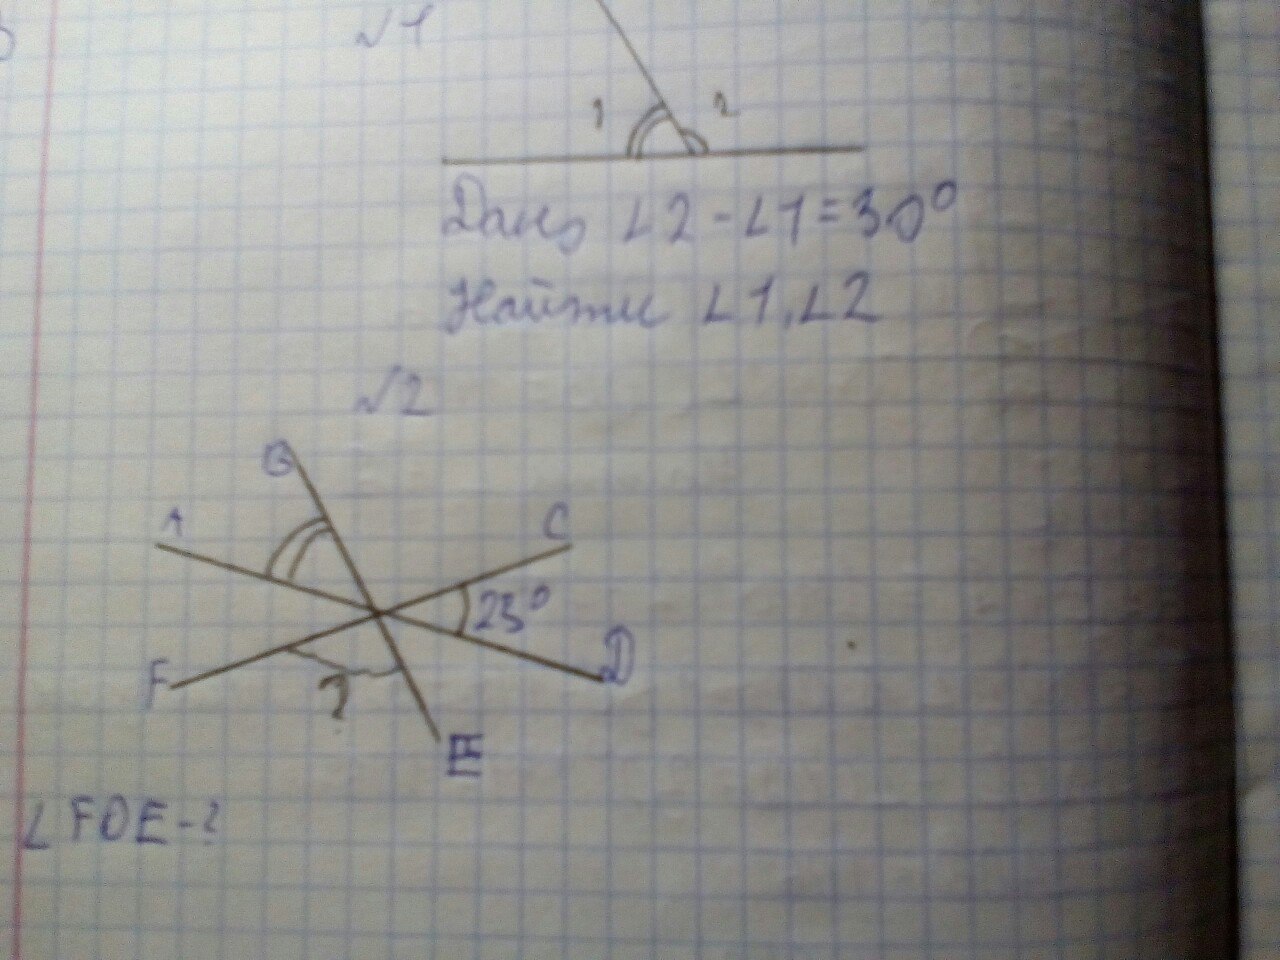 √1
1 2
Дано ∠2-∠1=30°
Найти ∠1,∠2
√2
B
A C
23°
F D
?
E
∠FOE-?